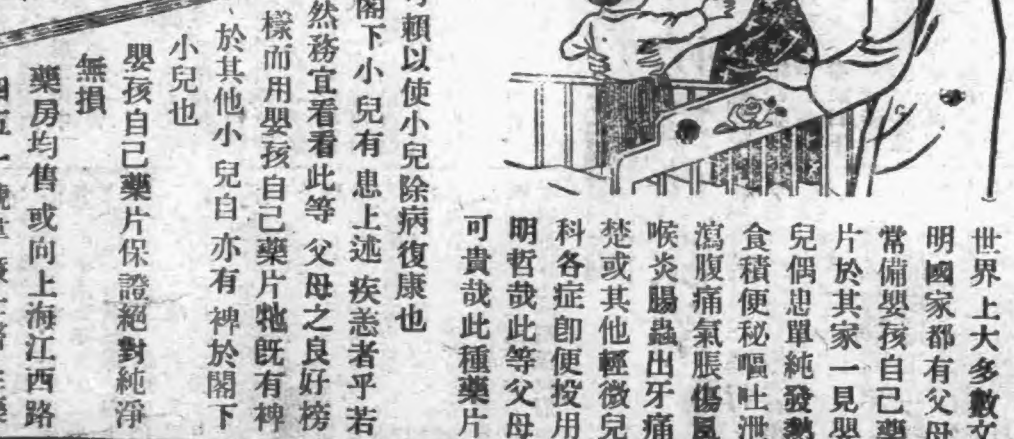 世界上大多數文
明國家都有父母
常備嬰孩自己藥
片於其家一見嬰
兒偶患單純發熱
食積便秘嘔吐泄
瀉腹痛氣脹傷風
喉炎腸蟲出牙痛
楚或其他輕微兒
科各症卽便投用
明哲哉此等父母
可貴哉此種藥片
賴以使小兒除病復康也
閣下小兒有患上述疾恙者乎若
然務宜看看此等父母之良好榜
樣而用嬰孩自己藥片牠旣有裨
於其他小兒自亦有裨於閣下
小兒也
嬰孩自己藥片保證絕對純淨
無損
藥房均售或向上海江西路